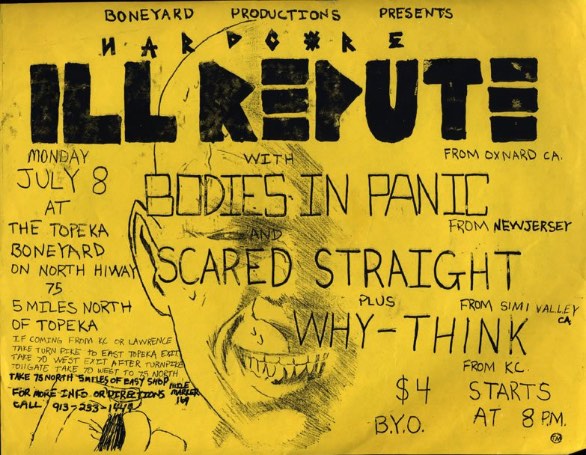 BONEYARD PRODUCTIONS PRESENTS
HARDCORE
ILL REPUTE
FROM OXNARD CA.
WITH
BODIES IN PANIC
FROM NEW JERSEY
AND
SCARED STRAIGHT
FROM SIMI VALLEY
CA
PLUS
WHY-THINK
FROM KC.
$4 STARTS
B.Y.O. AT 8 P.M.
TM
MONDAY
JULY 8
AT
THE TOPEKA
BONEYARD
ON NORTH HIWAY
75
5 MILES NORTH
OF TOPEKA
IF COMING FROM KC OR LAWRENCE
TAKE TURN PIKE TO EAST TOPEKA EXIT
TAKE 70 WEST EXIT AFTER TURNPIKE
TOLLGATE TAKE 70 WEST TO 75 NORTH
TAKE 75 NORTH 5 MILES OF EASY SHOP
MILE
MARKER
169
FOR MORE INFO OR DIRECTIONS
CALL 913-233-1449